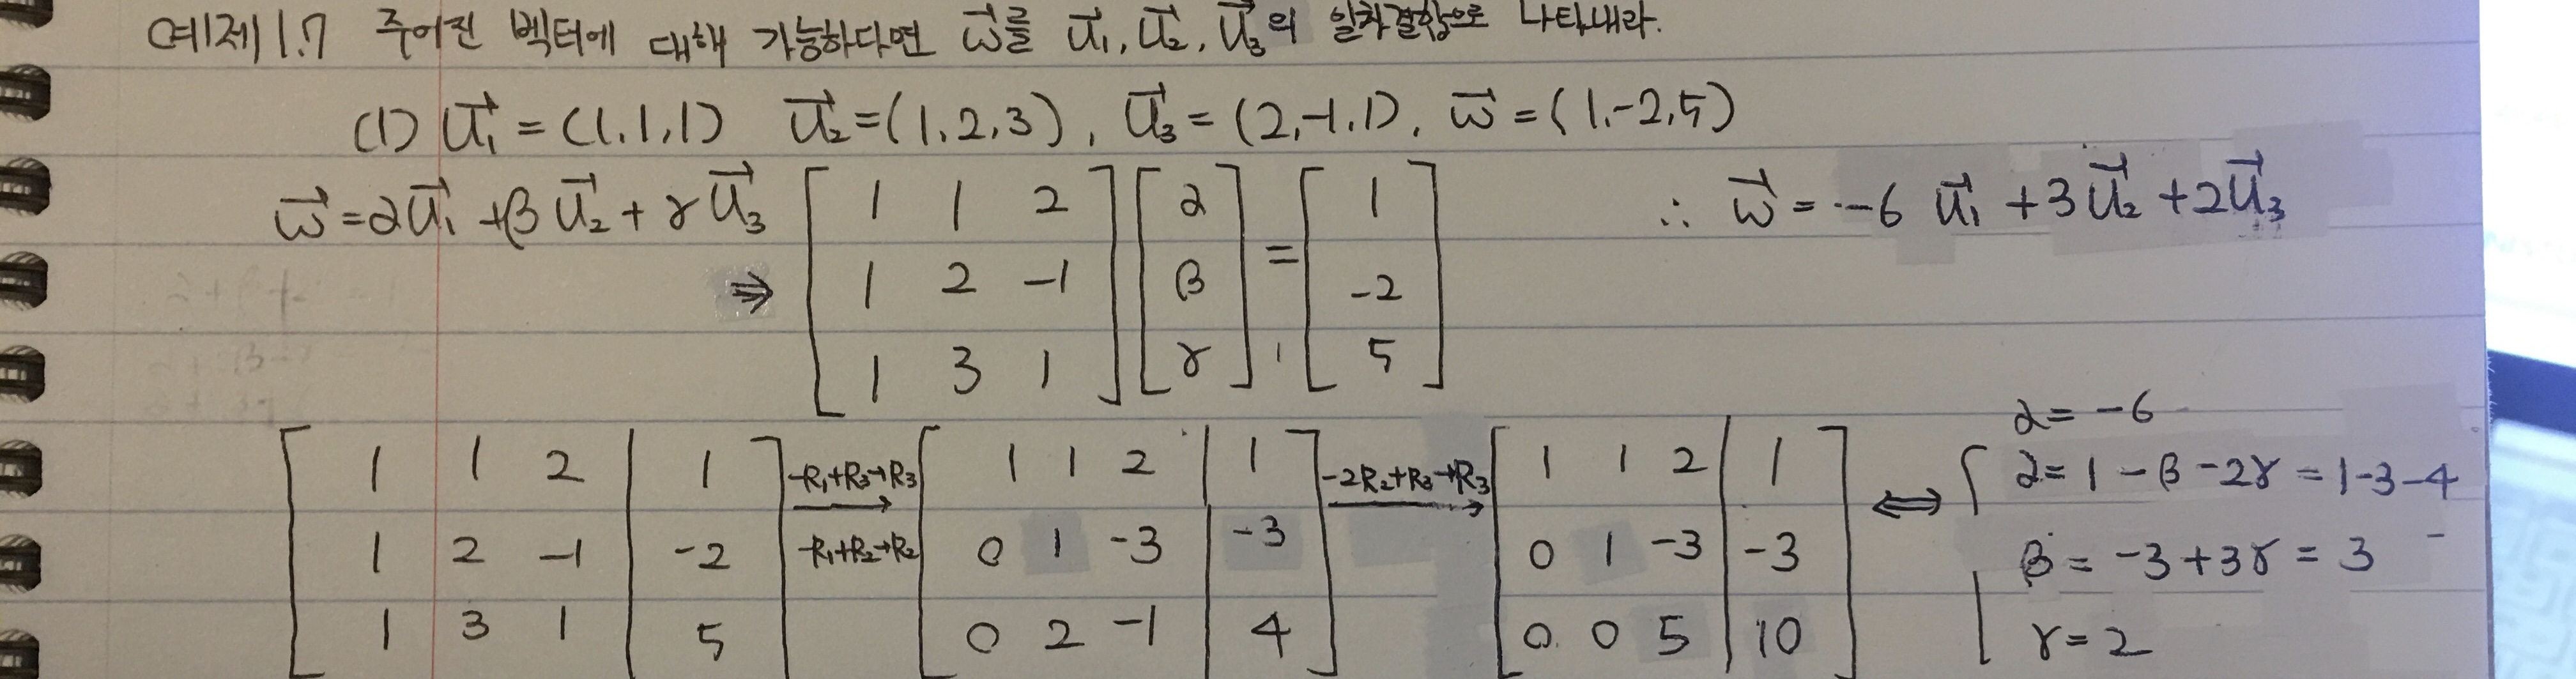 예제 1.7 주어진 벡터에 대해 가능하다면 w⃗를 u⃗₁, u⃗₂, u⃗₃의 일차결합으로 나타내라.
(1) u⃗₁ = (1,1,1) u⃗₂=(1,2,3), u⃗₃= (2,-1,1), w⃗ = (1,-2,5)
w⃗ = αu⃗₁ + βu⃗₂ + γu⃗₃ ⇒ [1 1 2; 1 2 -1; 1 3 1] [α; β; γ] = [1; -2; 5] ∴ w⃗ = -6 u⃗₁ + 3u⃗₂ + 2u⃗₃
[1 1 2 | 1; 1 2 -1 | -2; 1 3 1 | 5] -R₁+R₃→R₃ -R₁+R₂→R₂ → [1 1 2 | 1; 0 1 -3 | -3; 0 2 -1 | 4] -2R₂+R₃→R₃ → [1 1 2 | 1; 0 1 -3 | -3; 0 0 5 | 10] ⟺
α = -6
α = 1 - β - 2γ = 1-3-4
β = -3+3γ = 3
γ = 2